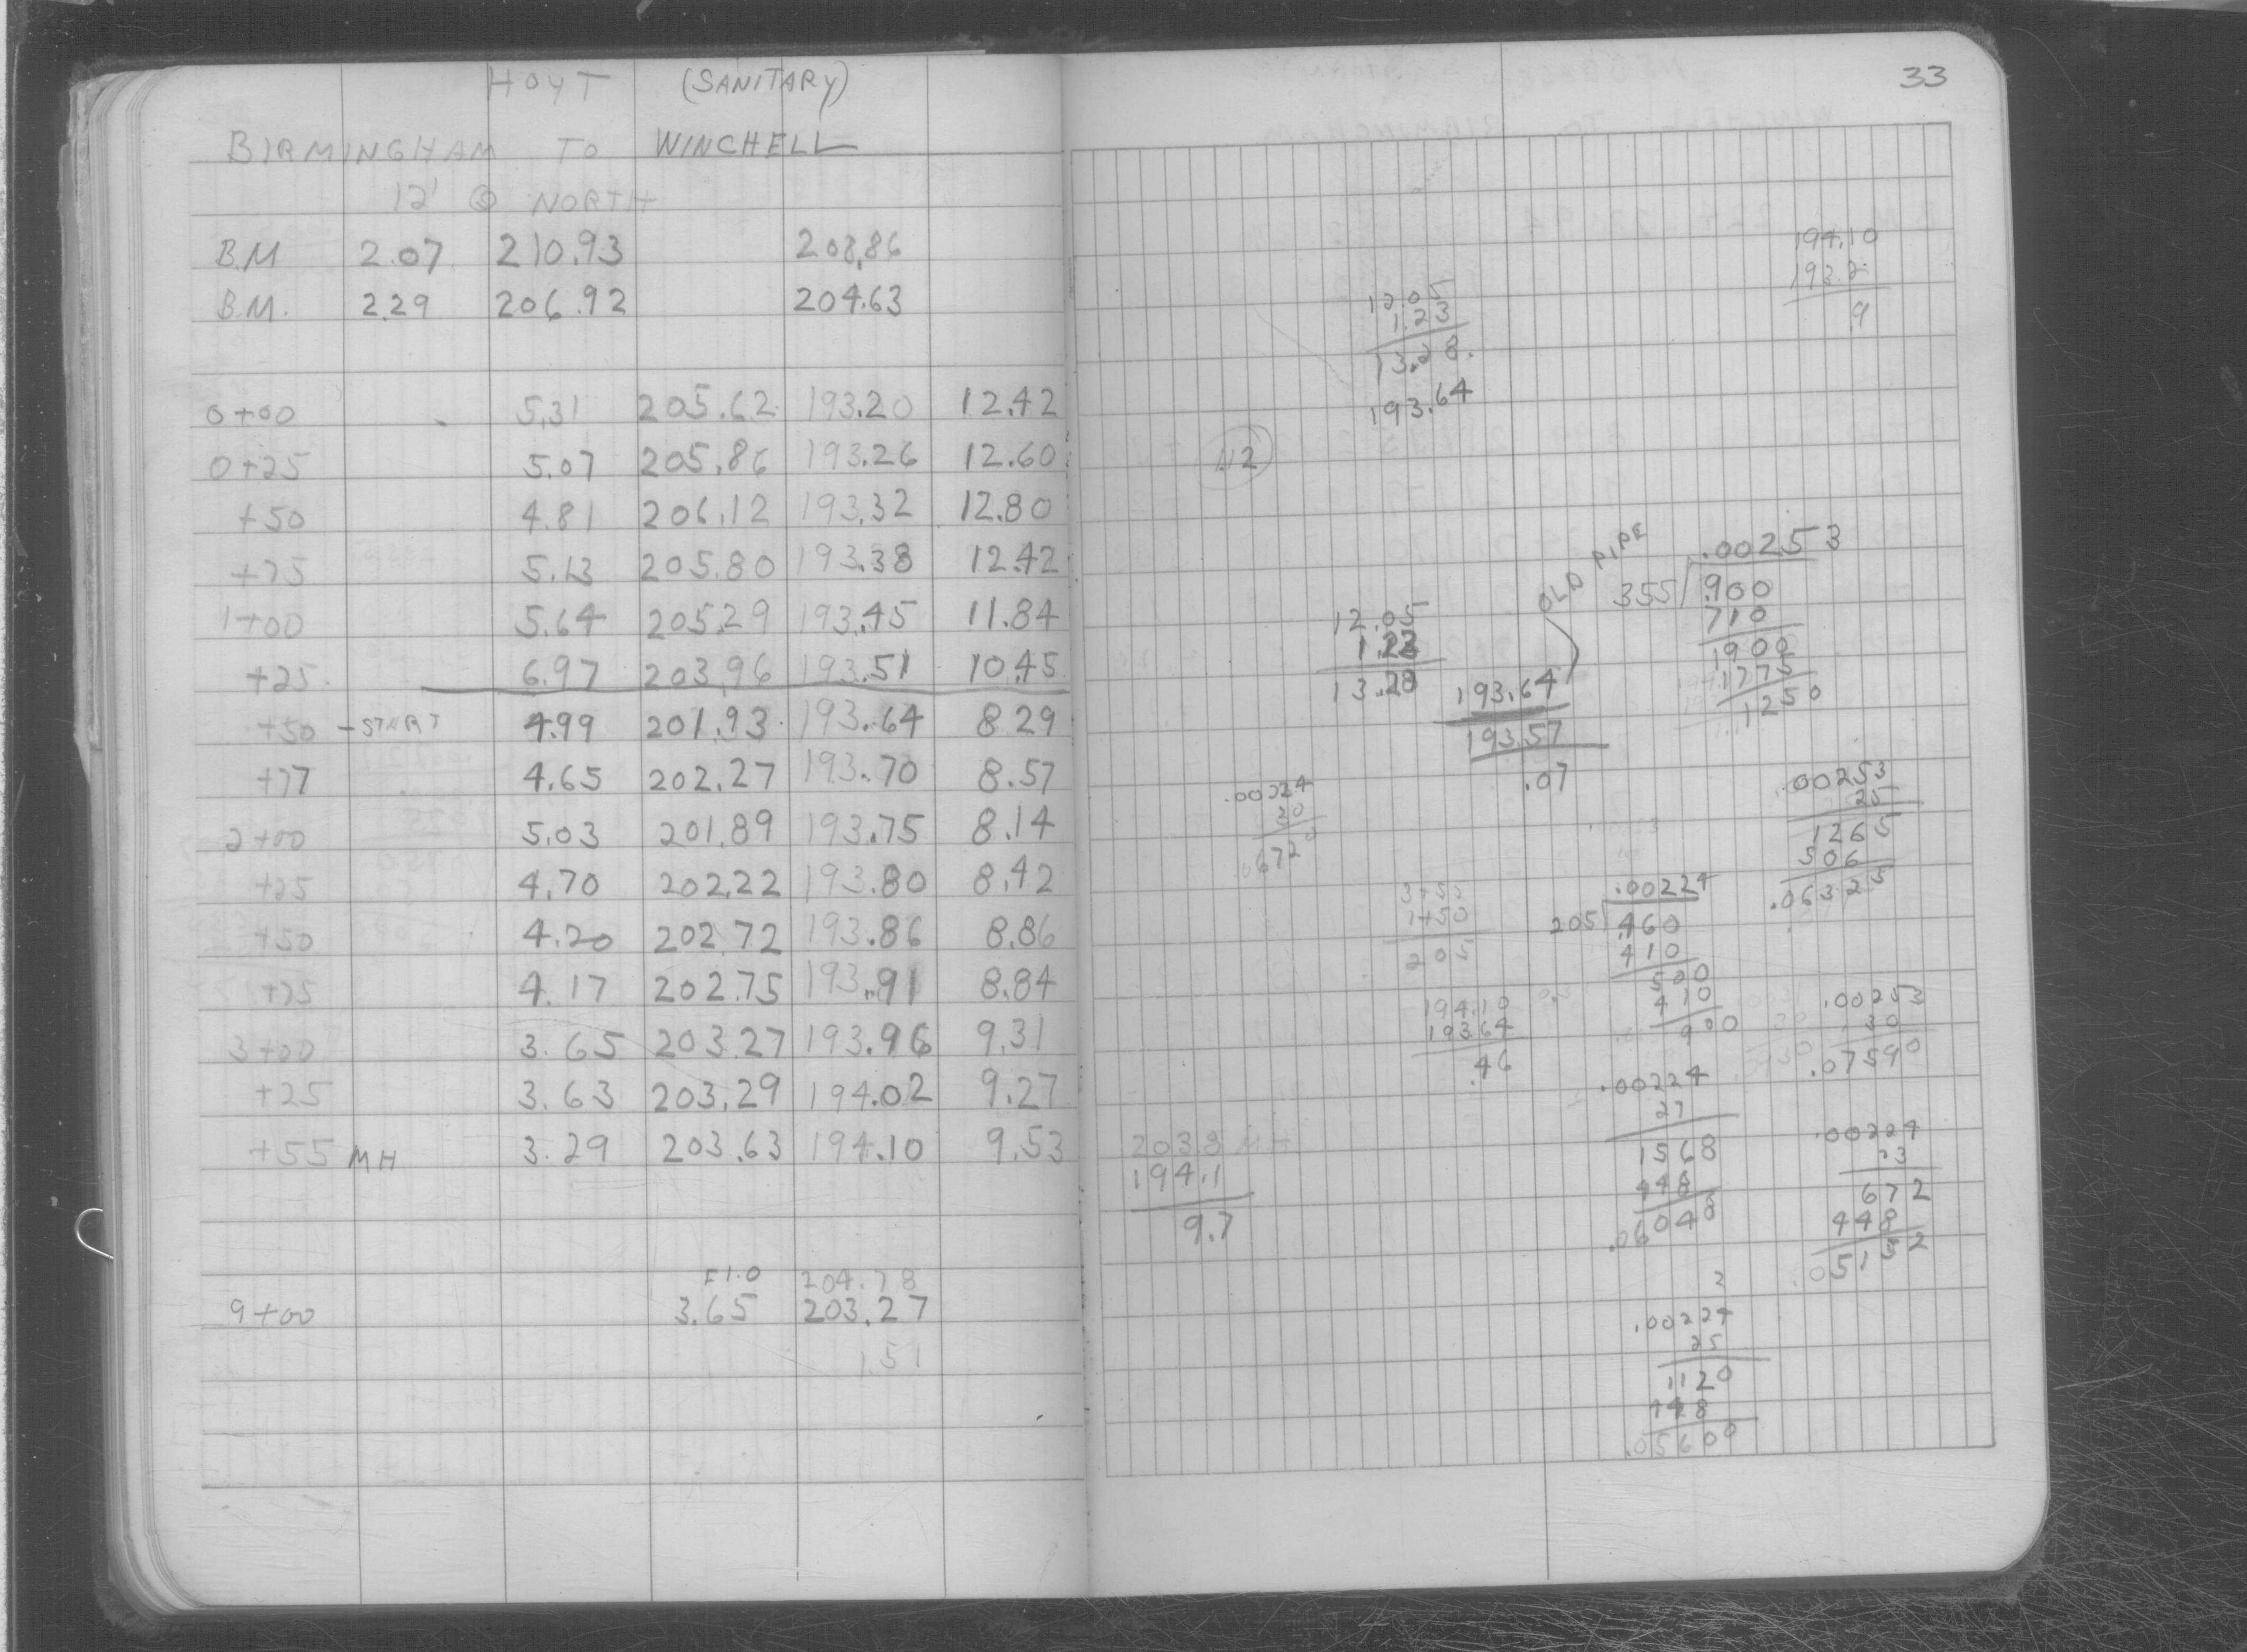 HOYT (SANITARY)
BIRMINGHAM TO WINCHELL
12' @ NORTH
B.M 2.07 210.93 208.86
B.M. 2.29 206.92 204.63
0+00 5.31 205.62 193.20 12.42
0+25 5.07 205.86 193.26 12.60
+50 4.81 206.12 193.32 12.80
+75 5.13 205.80 193.38 12.42
1+00 5.64 205.29 193.45 11.84
+25 6.97 203.96 193.51 10.45
+50 - START 4.99 201.93 193.64 8.29
+77 4.65 202.27 193.70 8.57
2+00 5.03 201.89 193.75 8.14
+25 4.70 202.22 193.80 8.42
+50 4.20 202.72 193.86 8.86
+75 4.17 202.75 193.91 8.84
3+00 3.65 203.27 193.96 9.31
+25 3.63 203.29 194.02 9.27
+55 MH 3.29 203.63 194.10 9.53
F1.0 204.78
9+00 3.65 203.27
1.51
33
194.10
193.2
.9
12.05
1.23
13.28.
193.64
OLD PIPE
.00253
355 .900
710
1900
1775
1250
12.05
1.23
13.28
193.64
193.57
.07
.00224
30
.06720
.00253
25
1265
506
.06325
3+55
1+50
205
.00224
205 .460
410
500
410
900
194.10
193.64
.46
.00253
30
.07590
.00224
27
1568
448
.06048
.00224
23
672
448
.05152
203.8 MH
194.1
9.7
2
.00224
25
1120
448
.05600